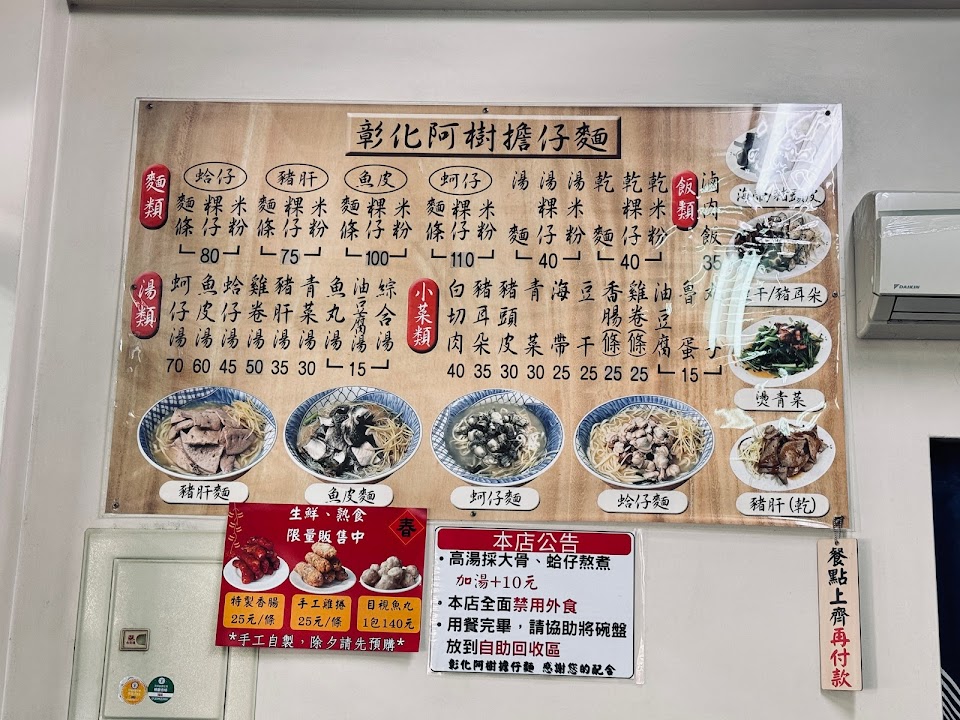 彰化阿樹擔仔麵
麵類
蛤仔 麵條 粿仔 米粉 80
豬肝 麵條 粿仔 米粉 75
魚皮 麵條 粿仔 米粉 100
蚵仔 麵條 粿仔 米粉 110
湯麵 湯粿仔 湯米粉 40
乾麵 乾粿仔 乾米粉 40
飯類
滷肉飯 35
湯類
蚵仔湯 70
魚皮湯 60
蛤仔湯 45
雞卷湯 50
豬肝湯 35
青菜湯 30
魚丸湯 油豆腐湯 綜合湯 15
小菜類
白切肉 40
豬耳朵 35
豬頭皮 30
青菜 30
海帶 25
豆干 25
香腸(條) 25
雞卷(條) 25
油豆腐 魯蛋 丸子 15
豆干/豬耳朵
燙青菜
豬肝(乾)
豬肝麵
魚皮麵
蚵仔麵
蛤仔麵
生鮮、熟食
限量販售中
春
特製香腸
25元/條
手工雞捲
25元/條
目視魚丸
1包140元
*手工自製,除夕請先預購*
本店公告
·高湯採大骨、蛤仔熬煮
加湯+10元
·本店全面禁用外食
·用餐完畢,請協助將碗盤
放到自助回收區
彰化阿樹擔仔麵 感謝您的配合
餐點上齊再付款
DAIKIN